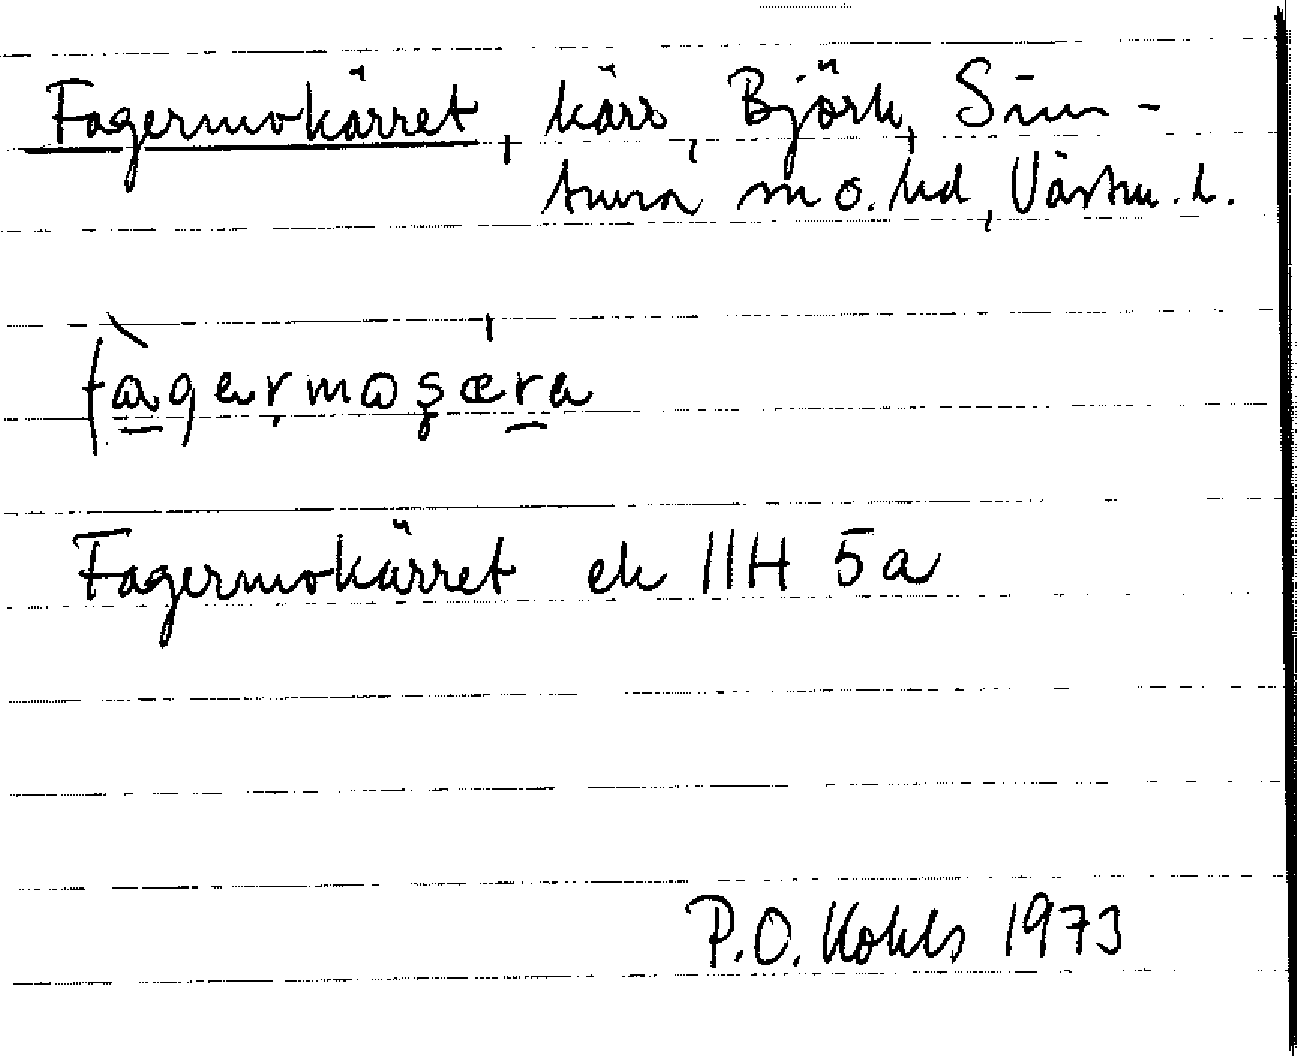 Fagermokärret, kärr, Björk, Sim-
tuna sn o. hd, Västm. l.
fàgermoşæra
Fagermokärret ek 11H 5a
P.O. Kohls 1973